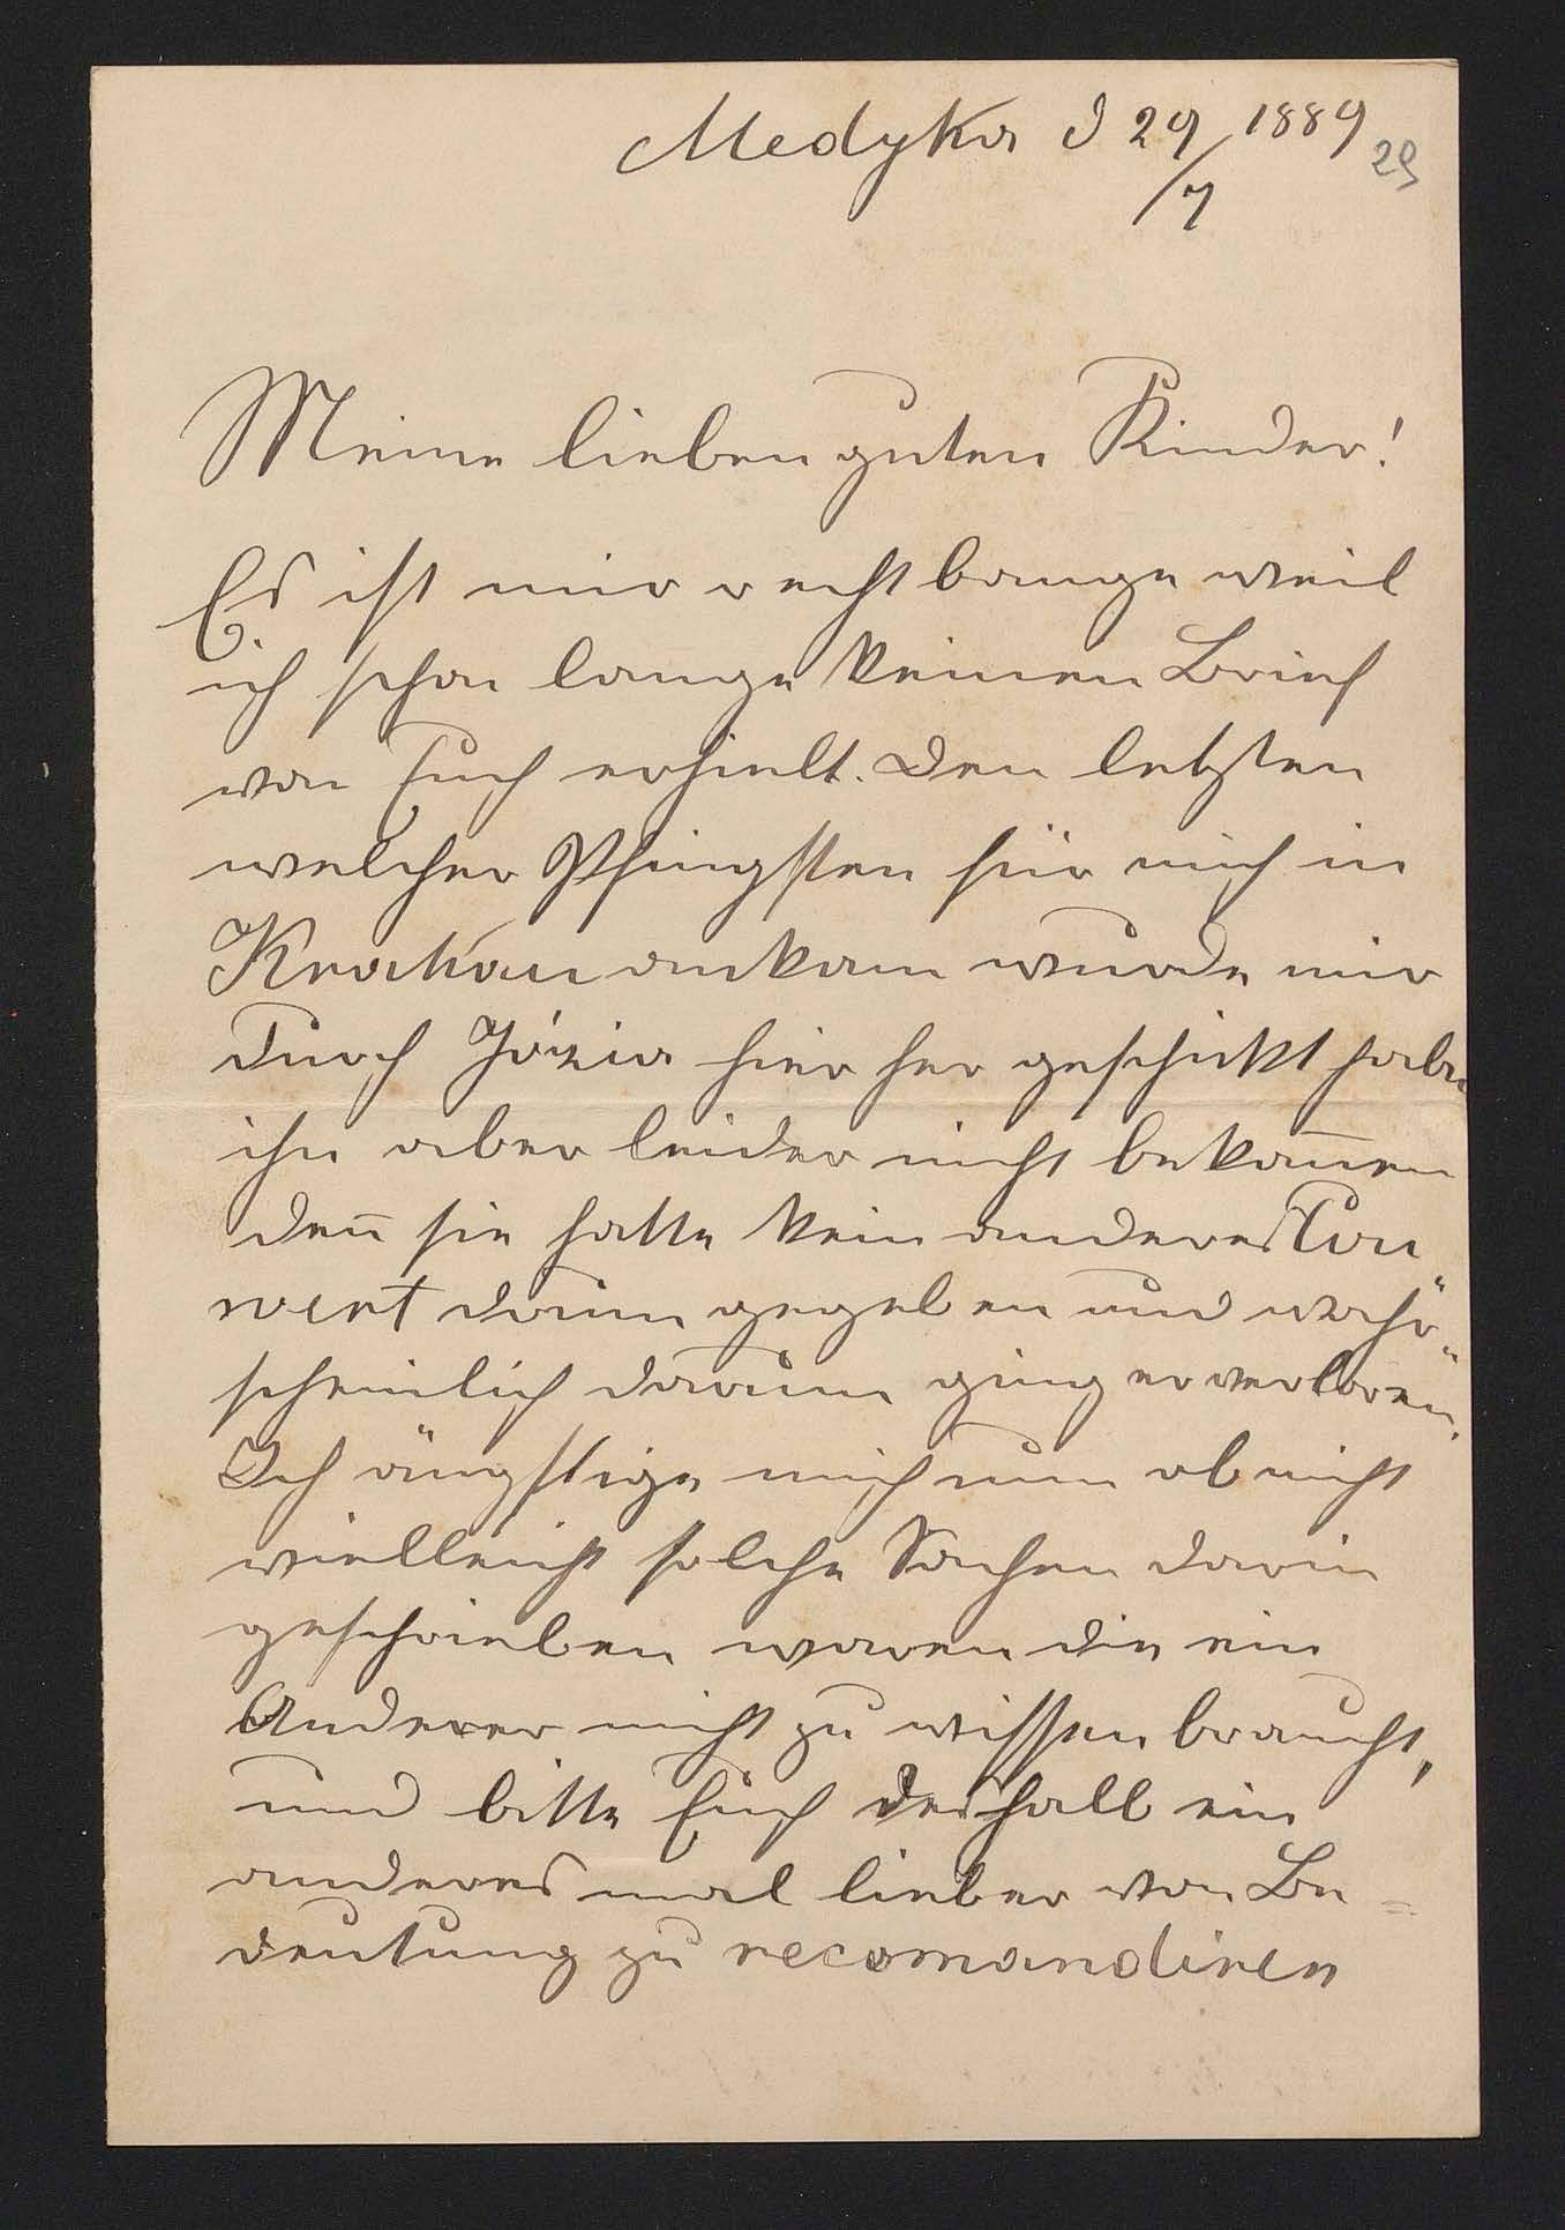 Medyka d 29/7 1889
29
Meine lieben guten Kinder!
Es ist mir recht bange weil
ich schon lange keinen Brief
von Euch erhielt. Den letzten
welcher Pfingsten für mich in
Krakau ankam wurde mir
durch Józia hier her geschikt habe
ihn aber leider nicht bekom̅en
den̅ sie hatte kein anderes Cou
vert darum gegeben und wahr"
scheinlich darum ging er verloren.
Ich ängstige mich nun ob nicht
vielleicht solche Sachen darin
geschrieben waren die ein
Anderer nicht zu wissen braucht,
und bitte Euch deshalb ein
anderes mal lieber von Be=
deutung zu recomandiren